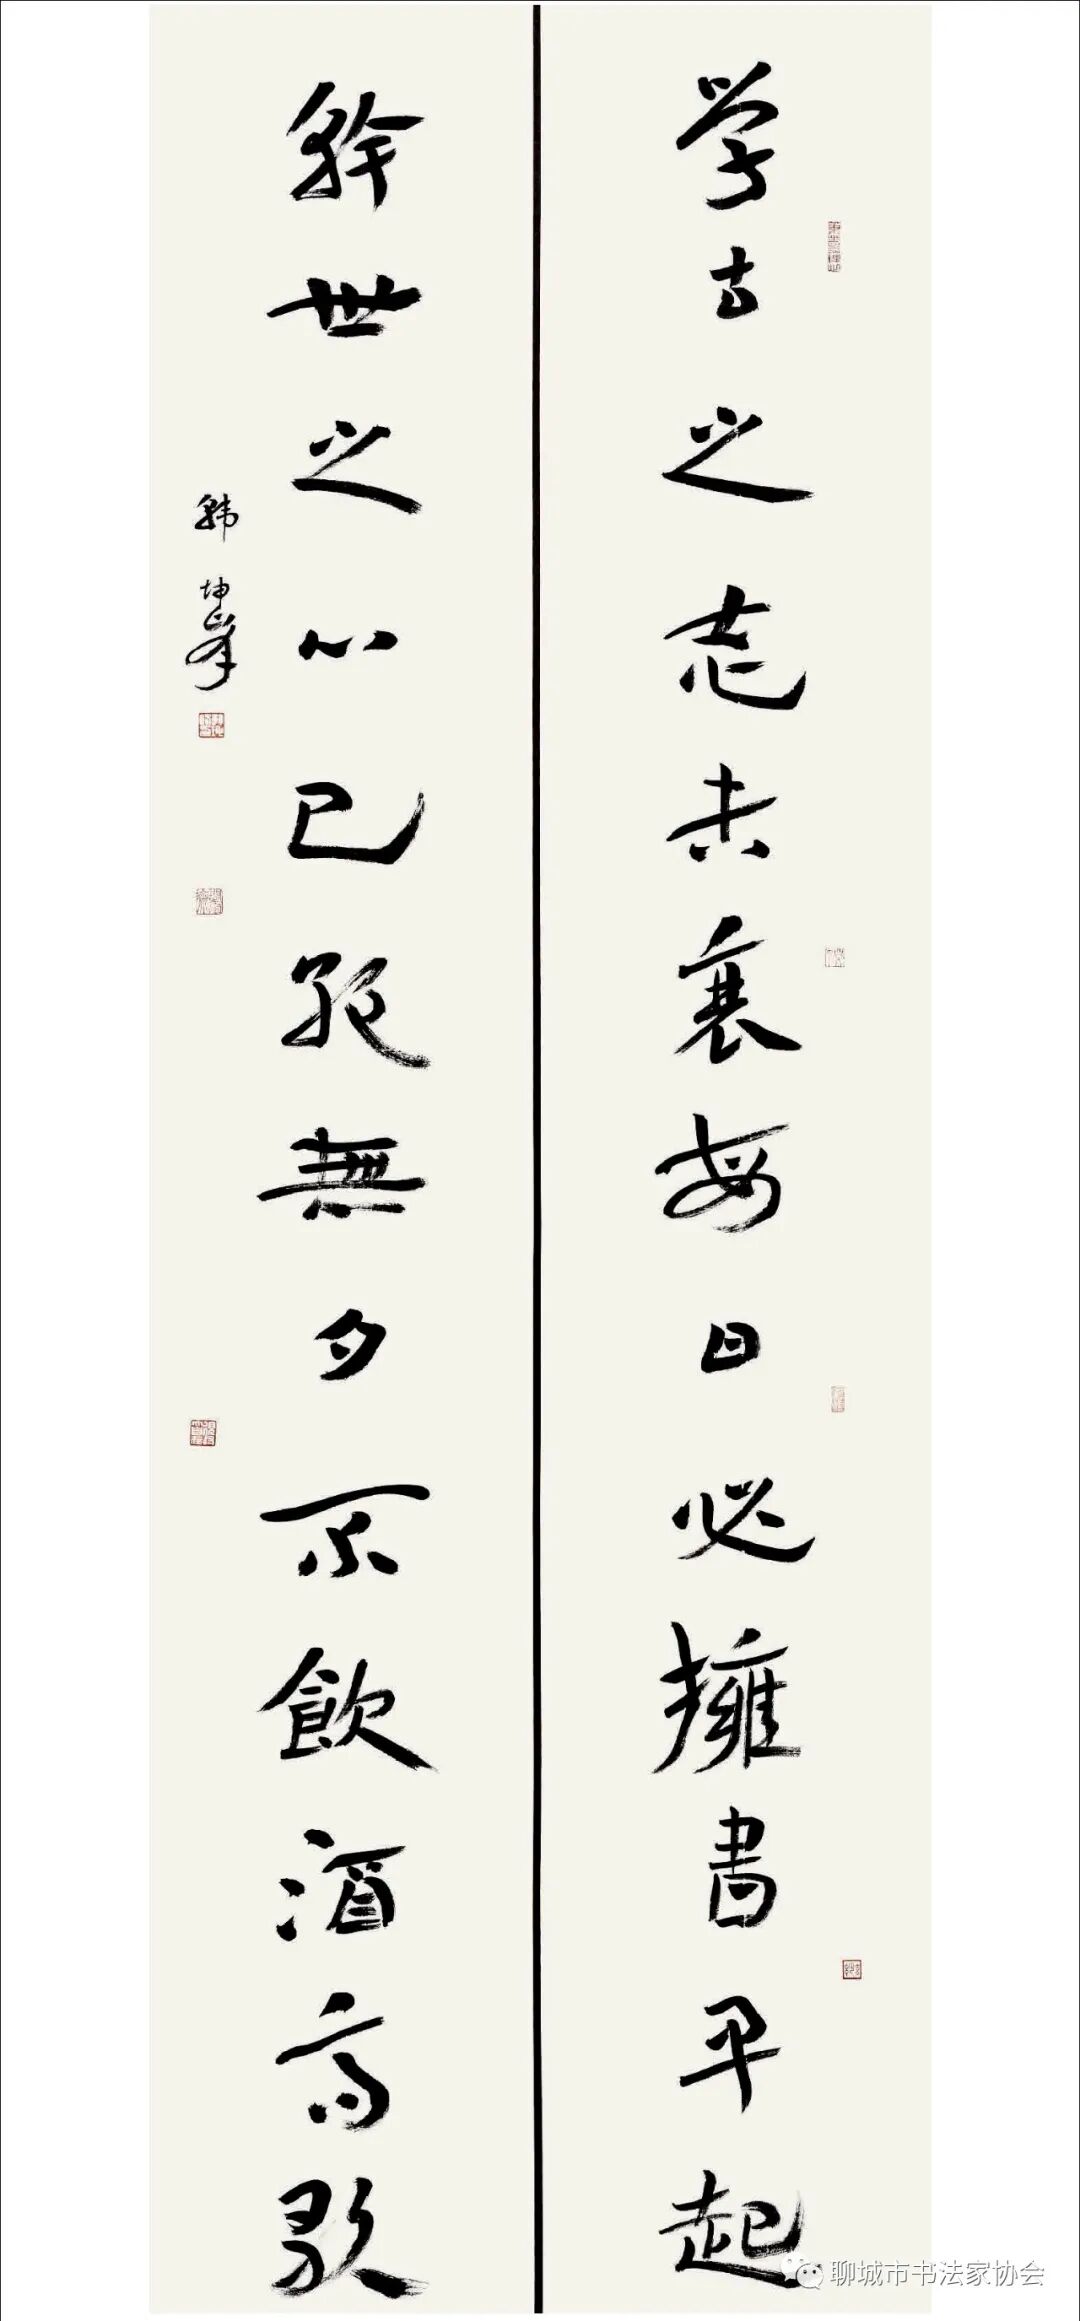 学古之志未衰每日必擁書早起
幹世之心已死無夕不飲酒高歌
韩坤峰
聊城市书法家协会